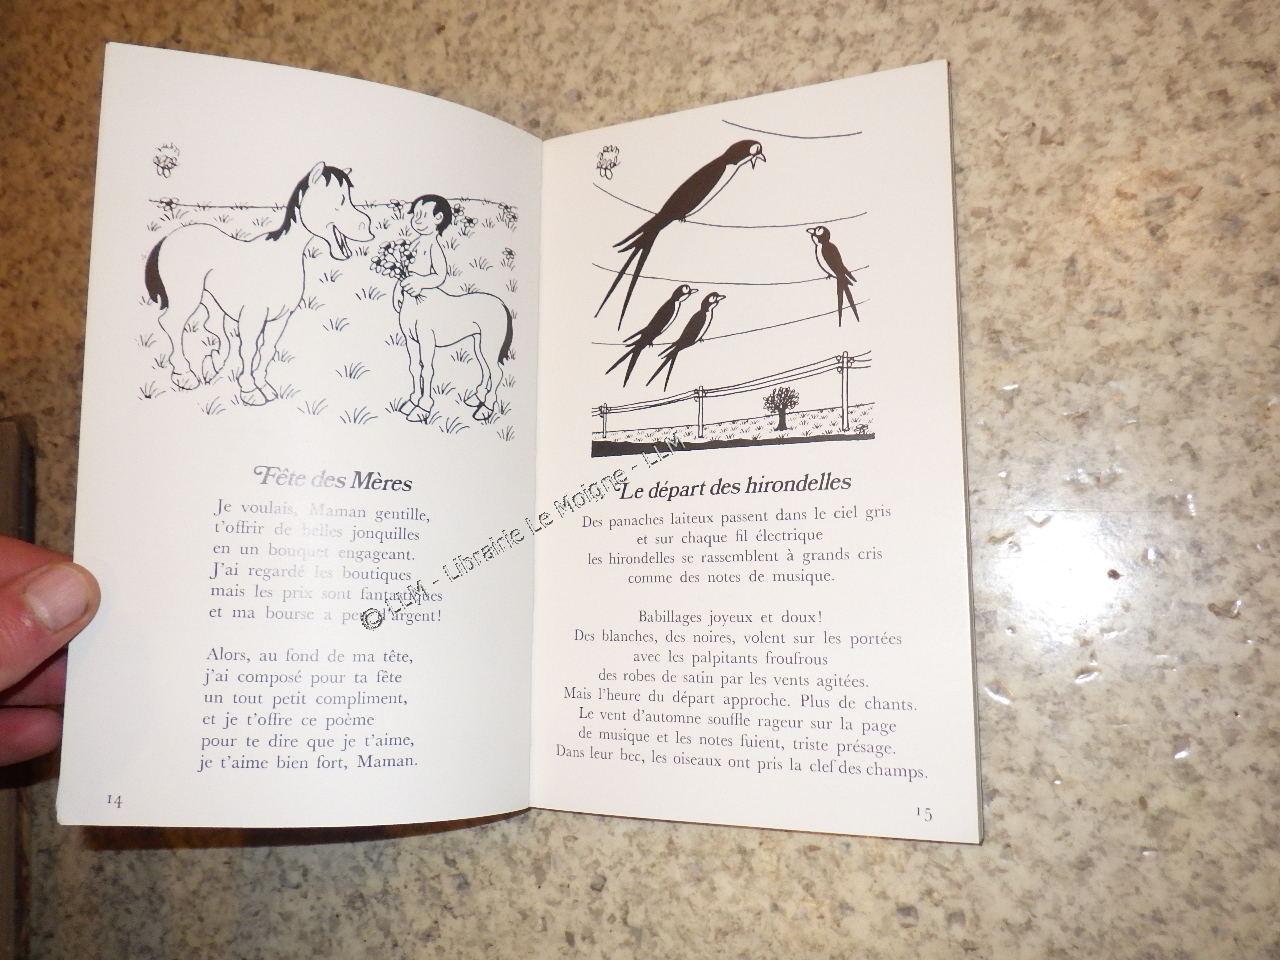 Fête des Mères
Je voulais, Maman gentille,
t'offrir de belles jonquilles
en un bouquet engageant.
J'ai regardé les boutiques
mais les prix sont fantastiques
et ma bourse a peu d'argent!
Alors, au fond de ma tête,
j'ai composé pour ta fête
un tout petit compliment,
et je t'offre ce poème
pour te dire que je t'aime,
je t'aime bien fort, Maman.
14
Le départ des hirondelles
Des panaches laiteux passent dans le ciel gris
et sur chaque fil électrique
les hirondelles se rassemblent à grands cris
comme des notes de musique.
Babillages joyeux et doux!
Des blanches, des noires, volent sur les portées
avec les palpitants froufrous
des robes de satin par les vents agitées.
Mais l'heure du départ approche. Plus de chants.
Le vent d'automne souffle rageur sur la page
de musique et les notes fuient, triste présage.
Dans leur bec, les oiseaux ont pris la clef des champs.
15
© LLM - Librairie Le Moigne - LLM